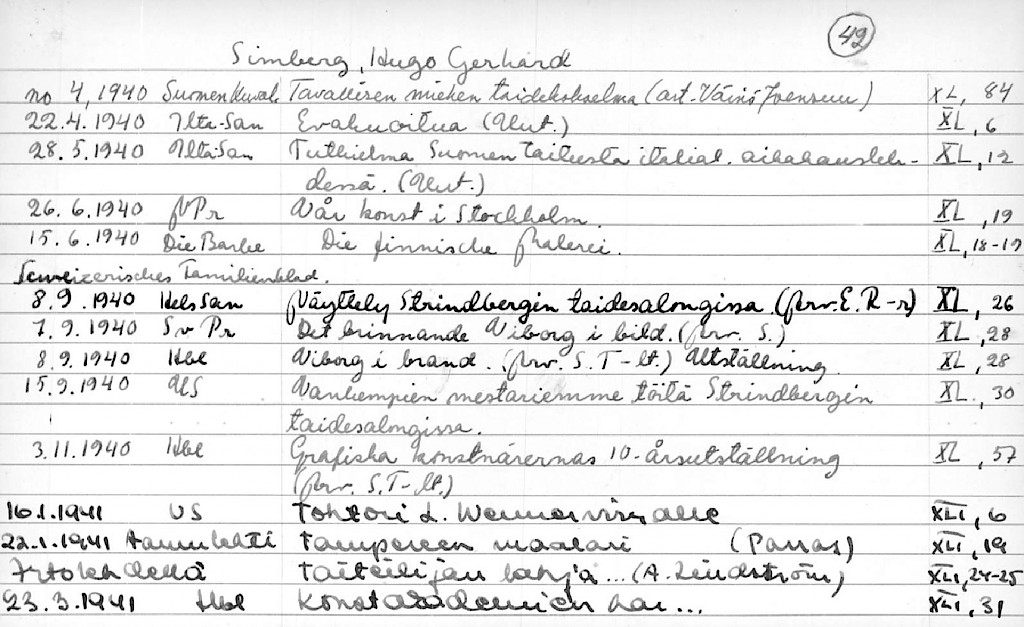 42
Simberg, Hugo Gerhard
no 4, 1940 Suomen Kuval. Tavallisen miehen taidekokoelma (art. Väinö Joensuu) XL, 84
22.4.1940 Ilta-San Evakuoitua (Uut.) XL, 6
28.5.1940 Ilta-San Tutkielma Suomen taiteesta italial. aikakausleh- XL, 12
dessä. (Uut.)
26.6.1940 Vår konst i Stockholm. XL, 19
15.6.1940 Die Barke Die finnische Malerei. XL, 18-19
Schweizerisches Familienblad.
8.9.1940 HelsSan Näyttely Strindbergin taidesalongissa (arv. E. R-r) XL, 26
7.9.1940 Sv Pr Det brinnande Viborg i bild. (arv. S.) XL, 28
8.9.1940 Hbl Viborg i brand. (arv. S. T-lt.) Utställning XL, 28
15.9.1940 US Vanhempien mestariemme töitä Strindbergin XL, 30
taidesalongissa.
3.11.1940 Hbl Grafiska konstnärernas 10-årsutställning XL, 57
(arv. S.T-lt.)
16.1.1941 US Tohtori L. Wennervirralle XLI, 6
22.1.1941 Aamulehti Tampereen maalari (Paras) XLI, 19
Iltalehdellä Taiteilijan lahja... (A. Lindström) XLI, 24-25
23.3.1941 Hbl Konstakademien har... XLI, 31